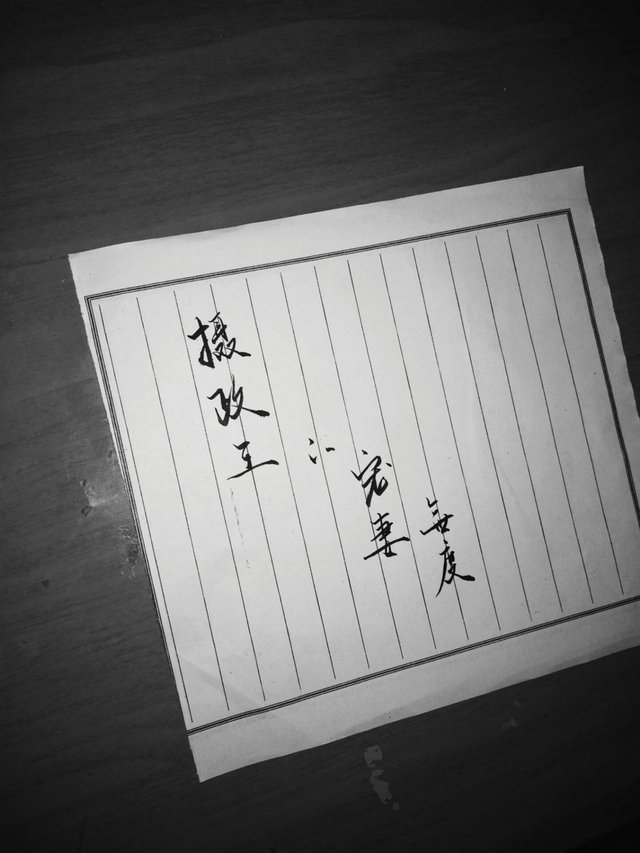 摄政王
:
宠妻
无度